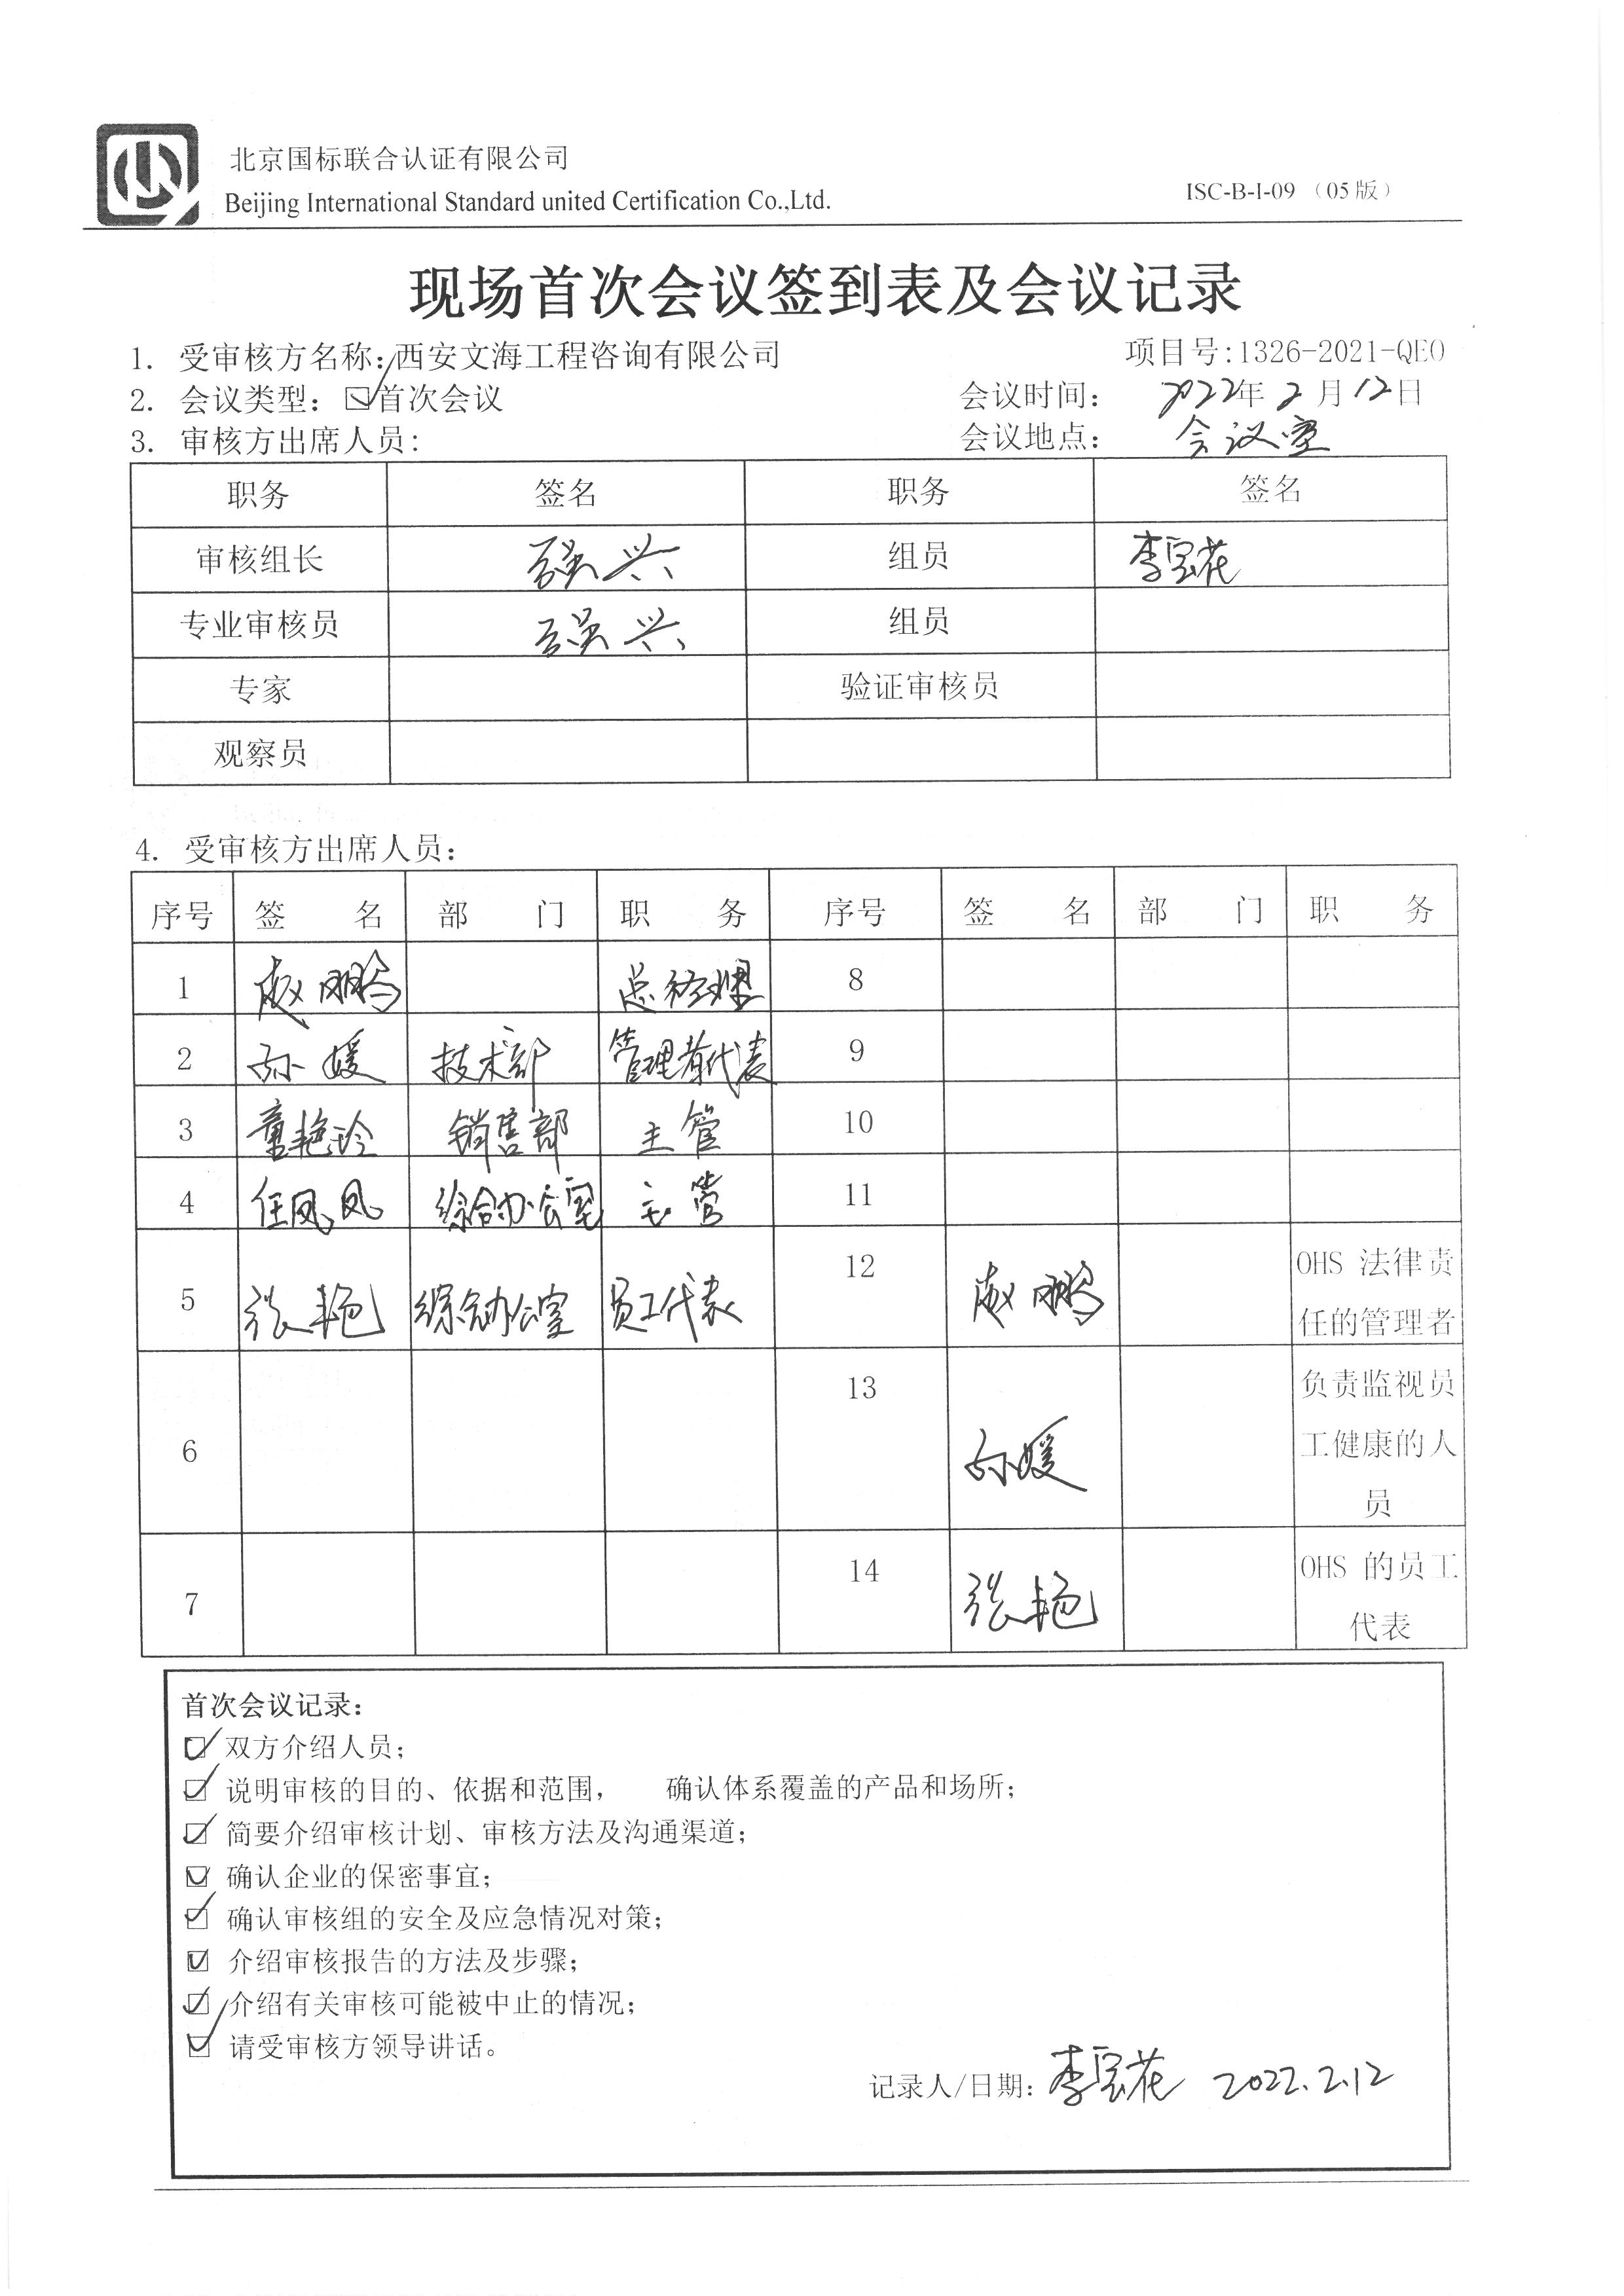 北京国标联合认证有限公司
Beijing International Standard united Certification Co.,Ltd.
ISC-B-I-09（05版）
现场首次会议签到表及会议记录
1. 受审核方名称:西安文海工程咨询有限公司 项目号:1326-2021-QEO
2. 会议类型: ☑首次会议 会议时间: 2022年2月12日
3. 审核方出席人员: 会议地点: 会议室
职务 签名 职务 签名
审核组长 强兴 组员 李宝花
专业审核员 强兴 组员
专家 验证审核员
观察员
4. 受审核方出席人员:
序号 签 名 部 门 职 务 序号 签 名 部 门 职 务
1 赵鹏 总经理 8
2 孙媛 技术部 管理者代表 9
3 童艳玲 销售部 主管 10
4 任凤凤 综合办公室 主管 11
5 张艳 综合办公室 员工代表 12 赵鹏 OHS 法律责
任的管理者
6 13 孙媛 负责监视员
工健康的人
员
7 14 张艳 OHS 的员工
代表
首次会议记录:
☑ 双方介绍人员;
☑ 说明审核的目的、依据和范围, 确认体系覆盖的产品和场所;
☑ 简要介绍审核计划、审核方法及沟通渠道;
☑ 确认企业的保密事宜;
☑ 确认审核组的安全及应急情况对策;
☑ 介绍审核报告的方法及步骤;
☑ 介绍有关审核可能被中止的情况;
☑ 请受审核方领导讲话。
记录人/日期: 李宝花 2022.2.12